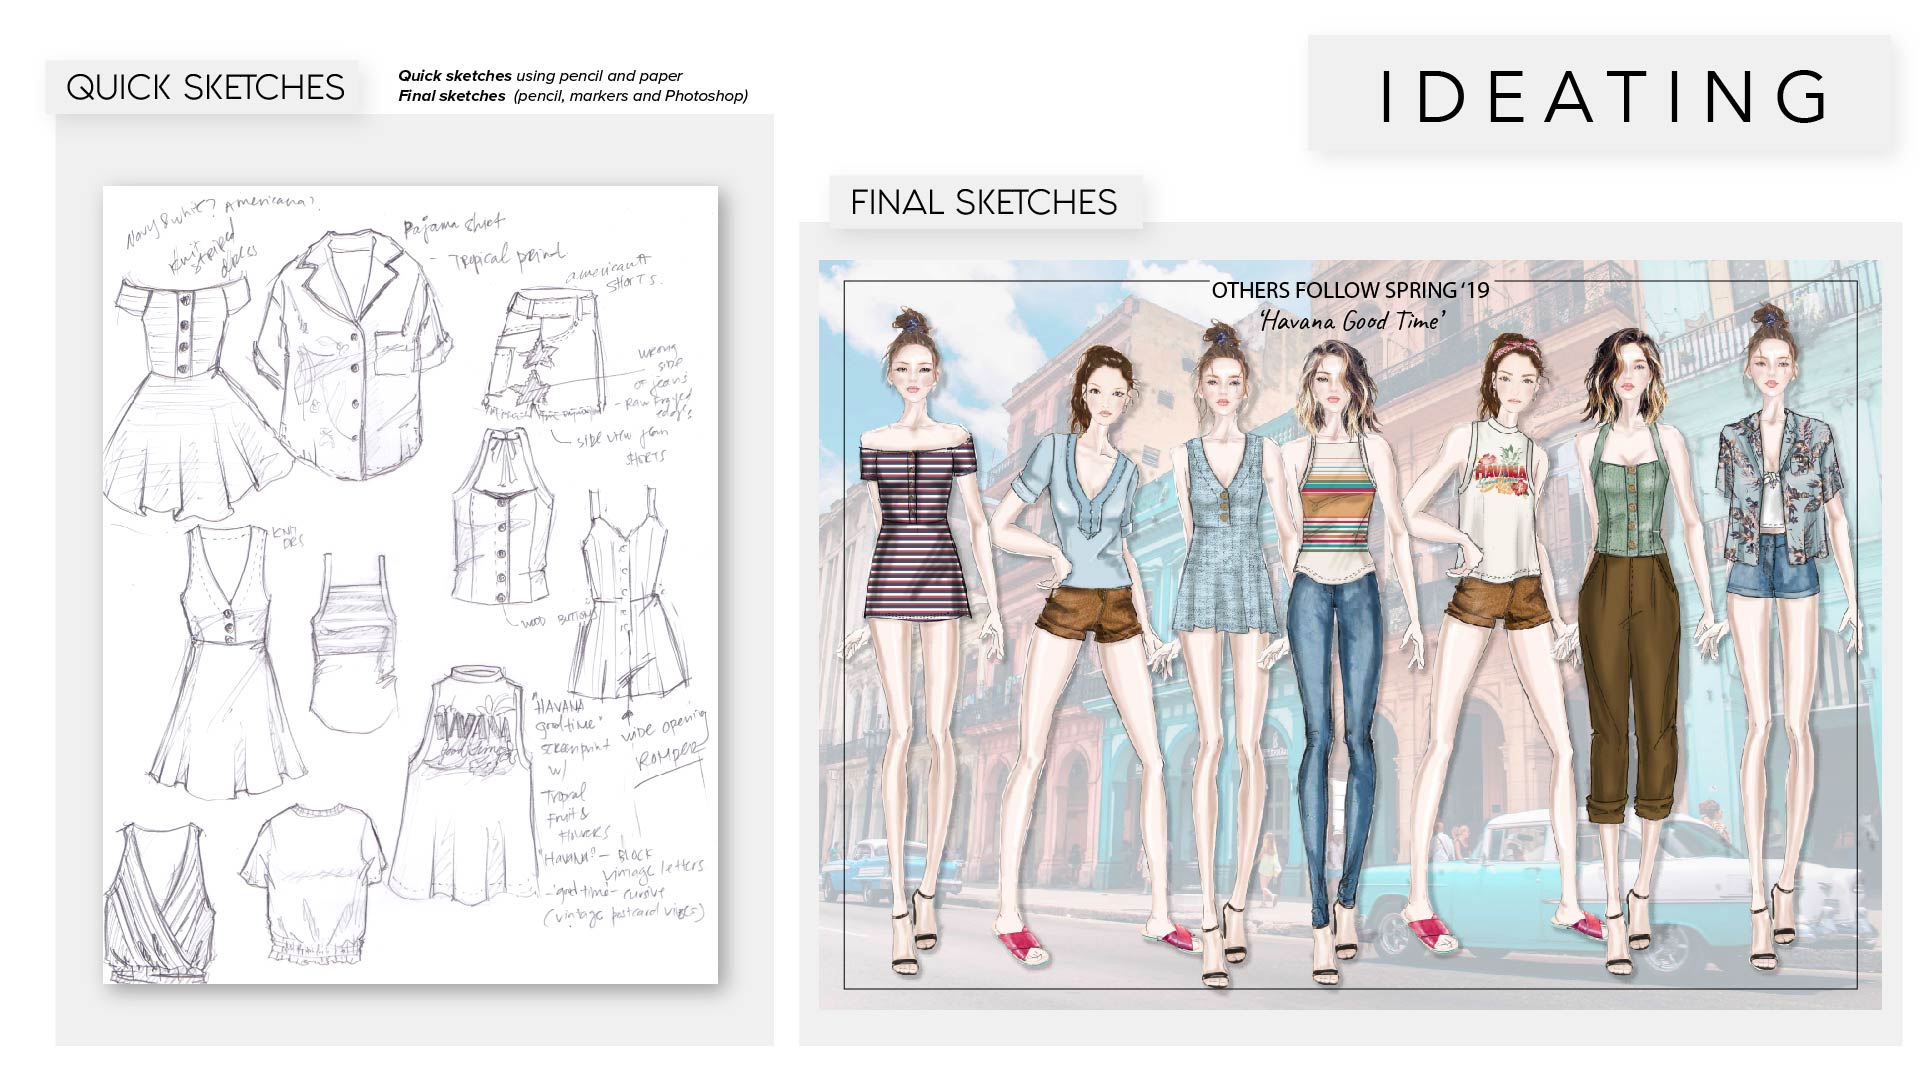 QUICK SKETCHES
Quick sketches using pencil and paper
Final sketches (pencil, markers and Photoshop)
IDEATING
Navy & white? Americana?
Knit
striped
dress
Pajama shirt
- Tropical print
americana
SHORTS.
wrong
side
of jeans
- Raw frayed
edges
side view
SHORTS
KNIT
DRS
WOOD BUTTONS
HAVANA
good time
"HAVANA
good time"
screenprint
w/
Tropical
Fruit &
flowers
"HAVANA" - BLOCK
vintage letters
- good time - cursive
(vintage postcard vibes)
wide opening
ROMPER
FINAL SKETCHES
OTHERS FOLLOW SPRING '19
'Havana Good Time'
HAVANA